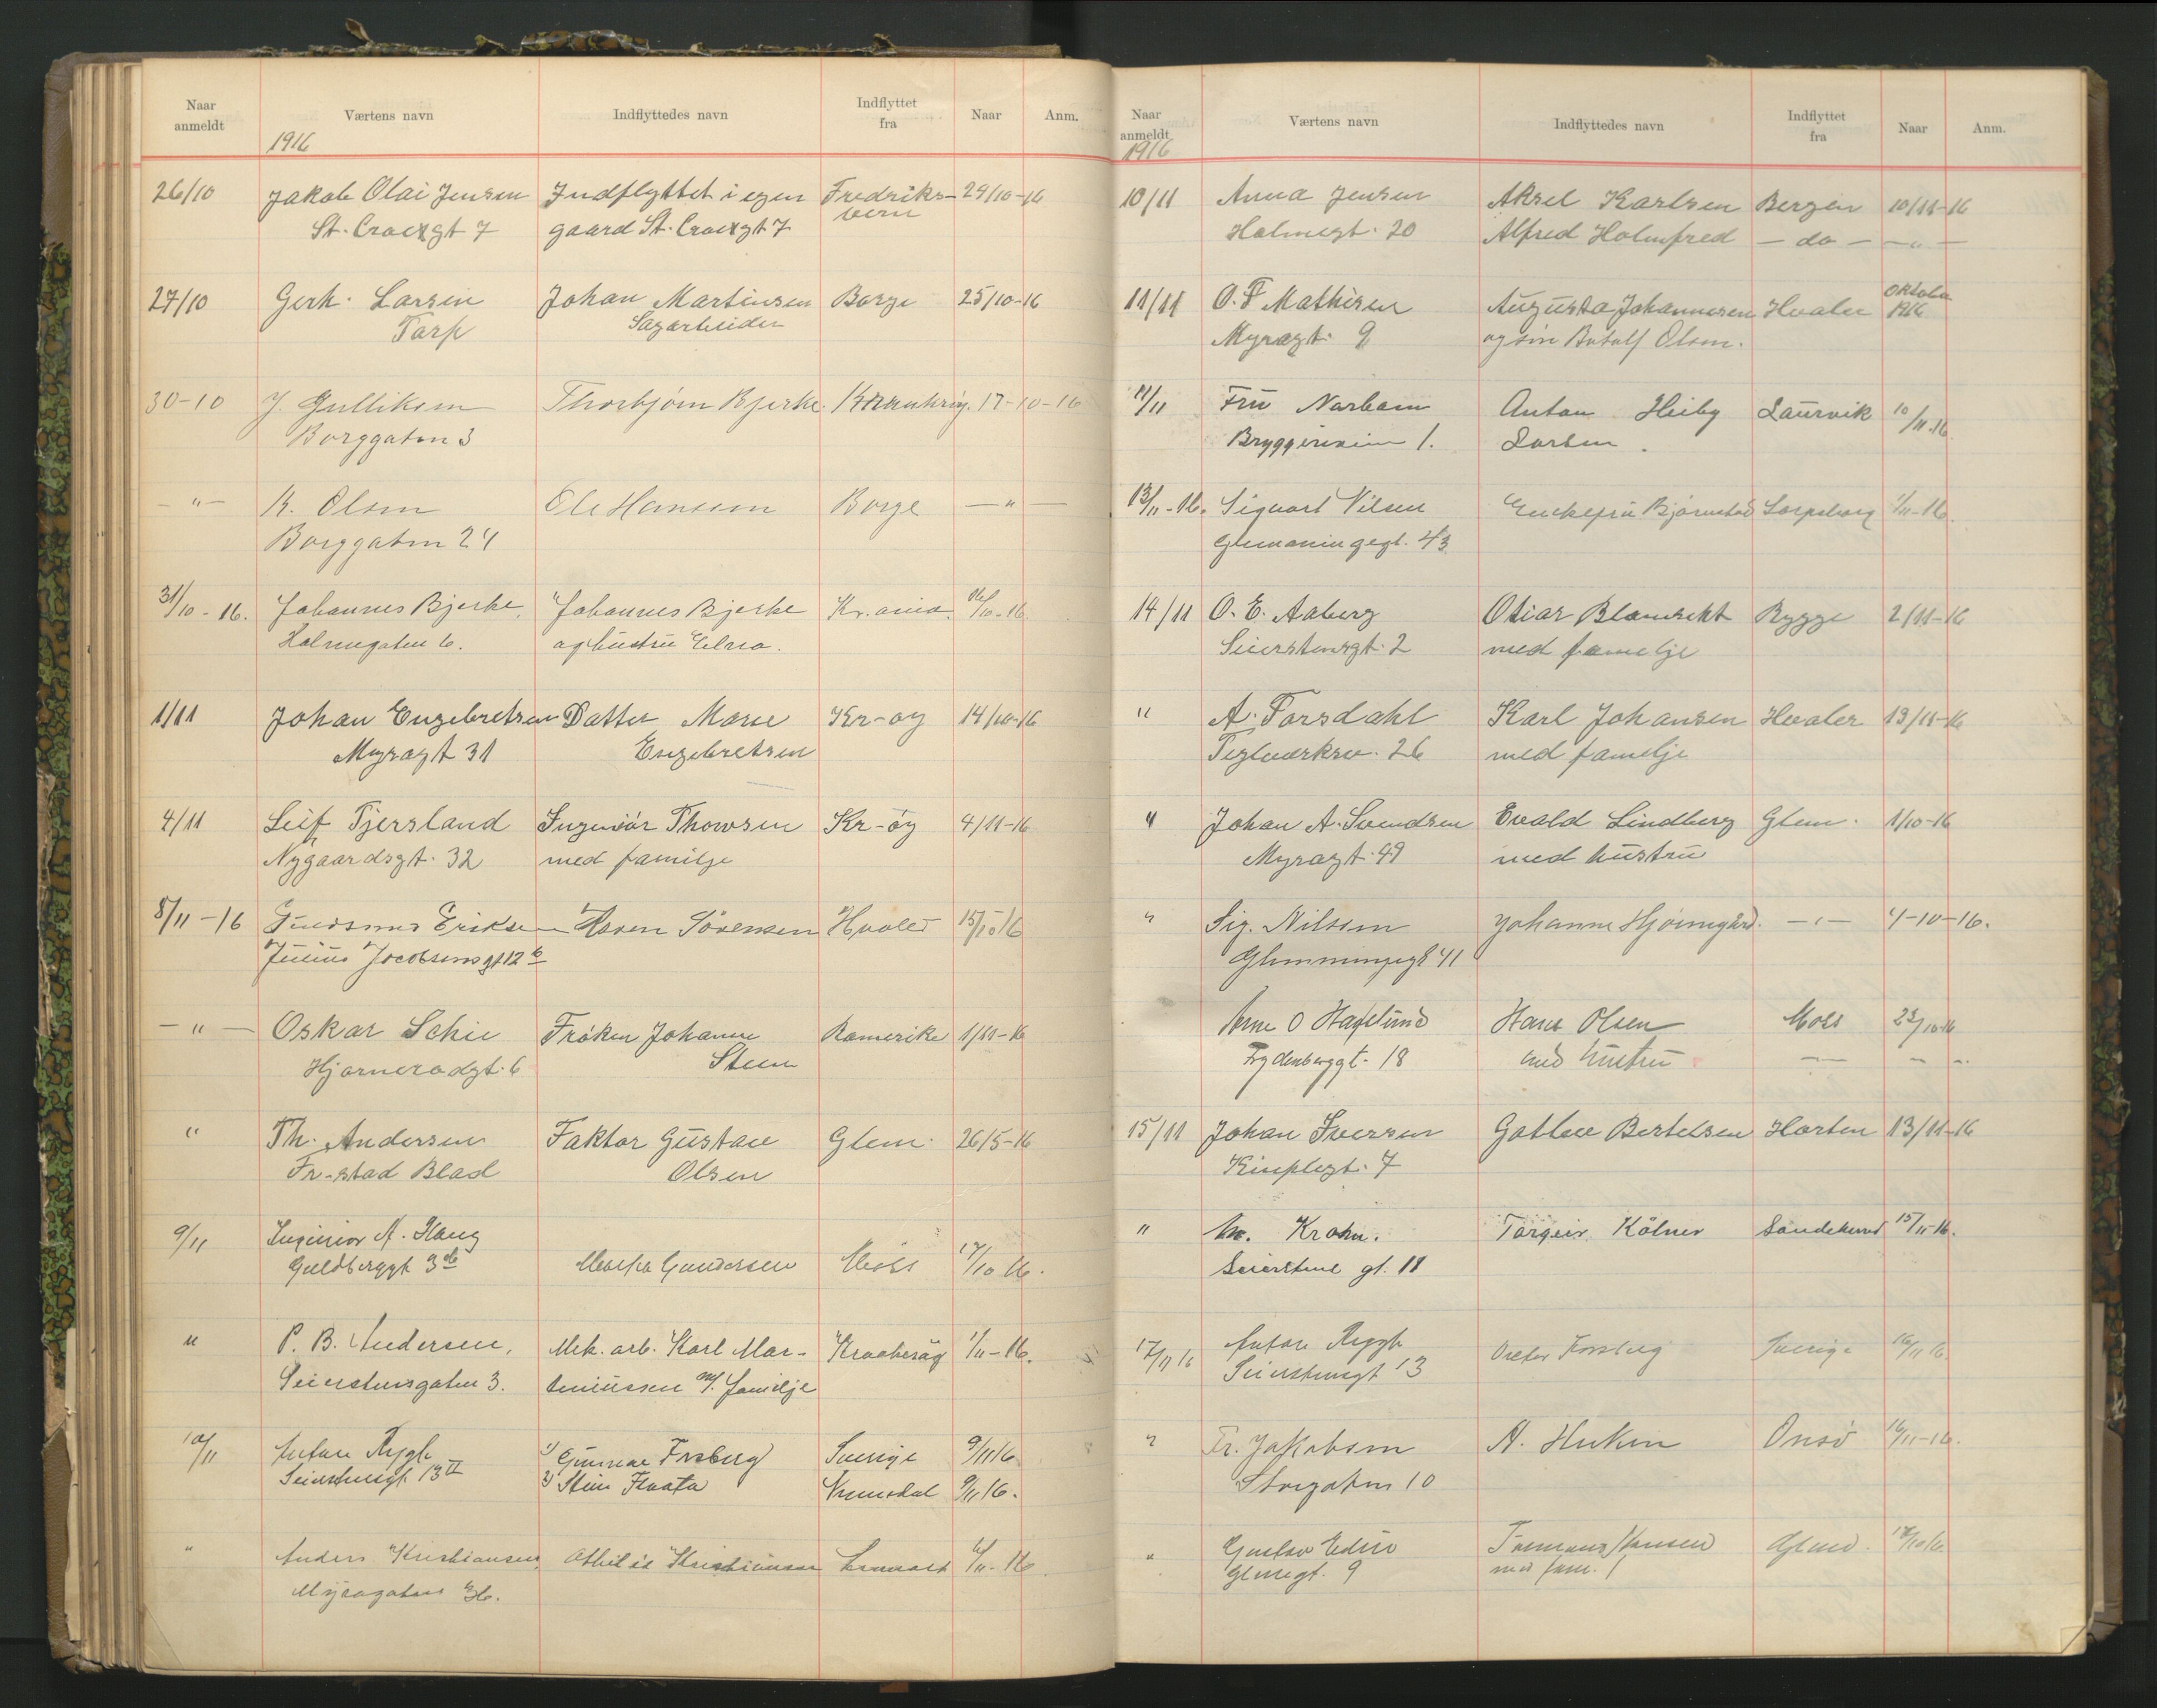 Naar anmeldt Værtens navn Indflyttedes navn Indflyttet fra Naar Anm.
1916
26/10 Jakob Olai Jensen Indflyttet i egen Fredriks- 24/10-16
St. Croixgt 7 gaard St. Croixgt 7 vern
27/10 Gerh. Larsen Johan Martinsen Borge 25/10-16
Torp Sagarbeider
30-10 J. Gulliksen Thorbjørn Bjerke 17-10-16
Borggaten 3
-"- K. Olsen Ole Hansen Borge -"-
Borggaten 24
31/10-16. Johannes Bjerke. Johannes Bjerke Kr.ania. /10-16.
Holmegaten 6. og hustru
1/11 Johan Engebretsen Datter Marie Kr-ay 14/10-16
Myragt 31 Engebretsen
4/11 Leif Tjersland Ingeniör Thowsen Kr-ay 4/11-16
Nygaardsgt. 32 med familje
8/11-16 Eriksen Maren Sörensen Hvaler 15/10 16
Julius Jacobsens gt 12 b
-"- Oskar Schie Fröken Johanne Romerike 1/11-16
Hjørnerødgt. 6 Steen
" Th. Andersen Faktor Gustav Glem. 26/5-16
Fr-stad Blad Olsen
9/11 Ingeniör A. Haug
Guldberggt 3 b Gundersen Moss 17/10 16.
" P. B. Andersen, Mek. arb. Karl Mar- Kraakeröy 1/11-16.
Seierstensgaten 3. teniussen m/ familje
10/11 Anton Rygh 1) Gunnar Frsberg Sverige 9/11 16
Seierstensgt 13 II 2) Stein Flaata Numedal 9/11 16.
" Anders Kristiansen, Kristiansen /11-16.
Myragaten
Naar anmeldt Værtens navn Indflyttedes navn Indflyttet fra Naar Anm.
1916
10/11 Anna Jensen Aksel Karlsen Bergen 10/11-16
Holmegt. 20 Alfred Holmfred -do- -"-
11/11 O. F Mathisen Augusta Johannesen Hvaler Oktober 1916
Myragt. 9 og sön Botolf Olsen.
11/11 Fru Narbom Anton Heiby Laurvik 10/11-16
Bryggeriveien 1. Larsen.
13/11-16. Sigvart Nilsen Enkefru Bjørnstad Sarpsborg 1/11-16.
Glemmingegt. 43
14/11 O. E. Aaberg Otiar Blomsekt Rygge 2/11-16
Seierstensgt. 2 med familje
" A. Torsdahl Karl Johansen Hvaler 13/11-16
Teglverksv. 26 med familje
" Johan A. Svendsen Evald Lindberg Glem. 1/10-16
Myragt. 49 med hustru
" Sig. Nilsen Johanne -"- 4-10-16.
Glemmingegt 41
Arne O Hagelund Hans Olsen Moss 23/10-16
Frydenberggt. 18 med hustru - - -
15/11 Johan Iversen Gotlew Bertelsen Horten 13/11-16
7
" M. Krohn. Torgeir Kölner 15/11-16.
Seierstens gt. 11
17/11 16 Anton Rygh Forsberg Sverige 16/11 16.
Seierstensgt 13
" Fr. Jakobsen A. Huken Onsö 16/11-16.
Storgaten 10
" Gustav Edin Hansen Glem. 17/10 16
Glemgt. 9 med fam.